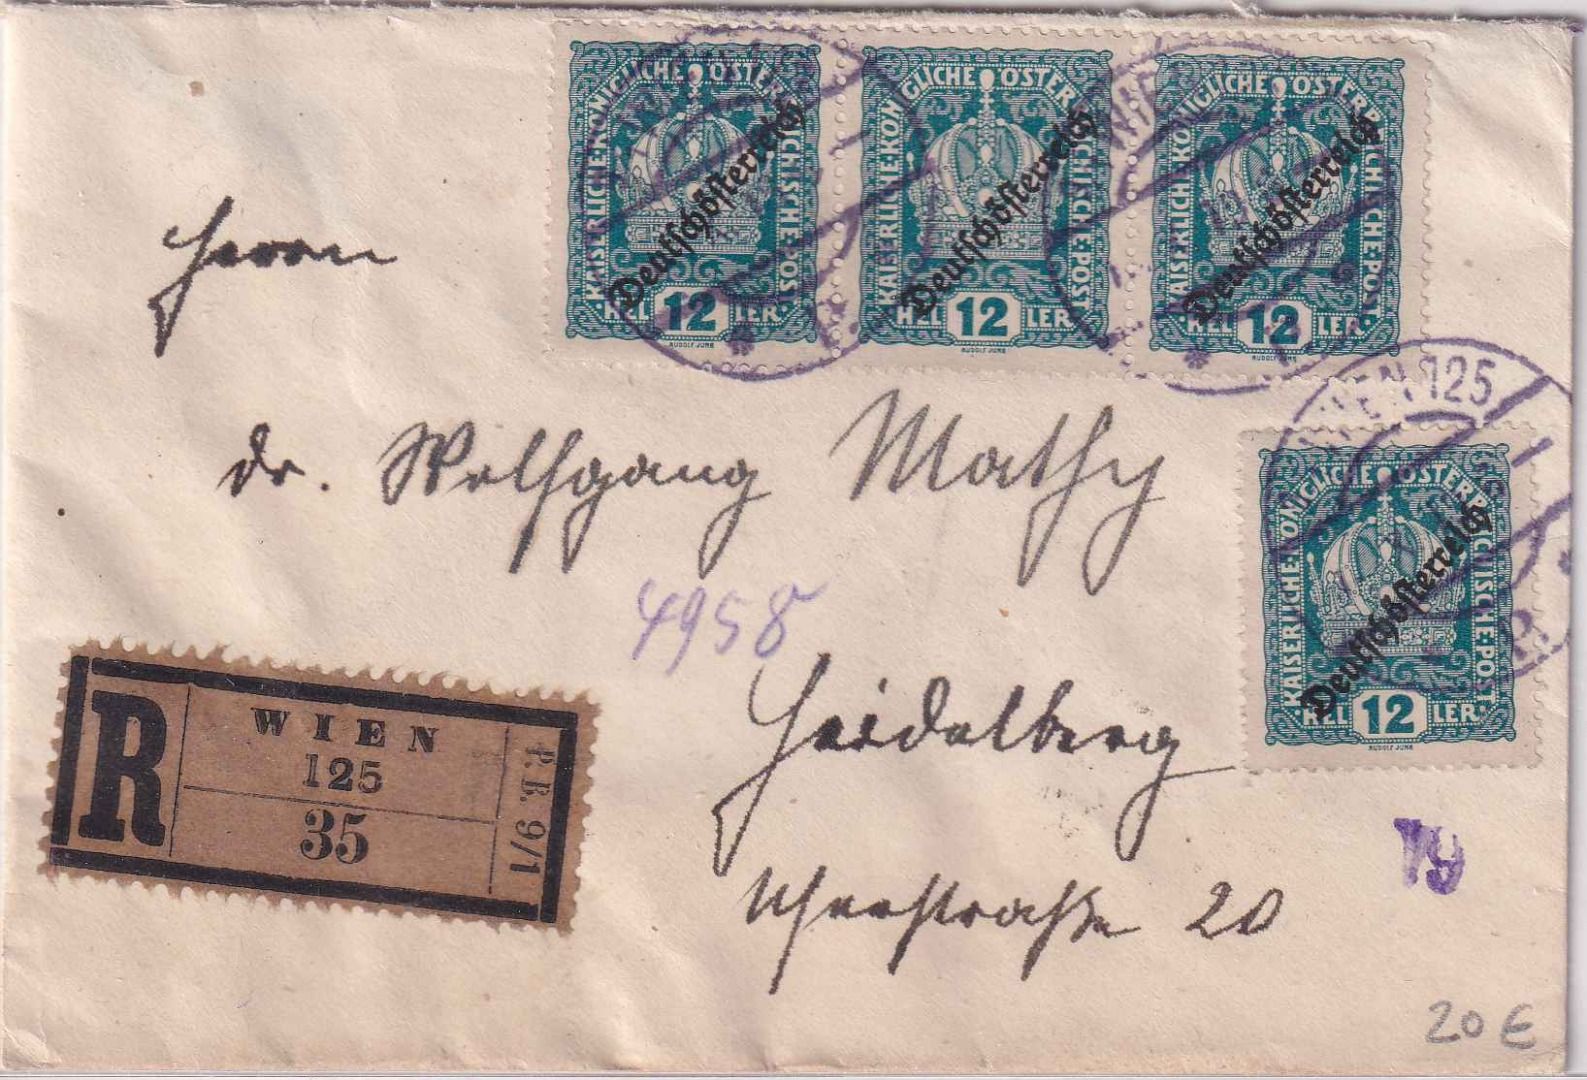 KAISERLICHE·KÖNIGLICHE·ÖSTERREICHISCHE·POST
Deutschösterreich
HEL 12 LER
RUDOLF JUNK
KAISERLICHE·KÖNIGLICHE·ÖSTERREICHISCHE·POST
Deutschösterreich
HEL 12 LER
RUDOLF JUNK
KAISERLICHE·KÖNIGLICHE·ÖSTERREICHISCHE·POST
Deutschösterreich
HEL 12 LER
RUDOLF JUNK
WIEN 125
KAISERLICHE·KÖNIGLICHE·ÖSTERREICHISCHE·POST
Deutschösterreich
HEL 12 LER
RUDOLF JUNK
Herrn
Dr. Wolfgang Mathy
4958
Heidelberg
straße 20
R
WIEN
125
35
P. B. 9/1
19
20 €